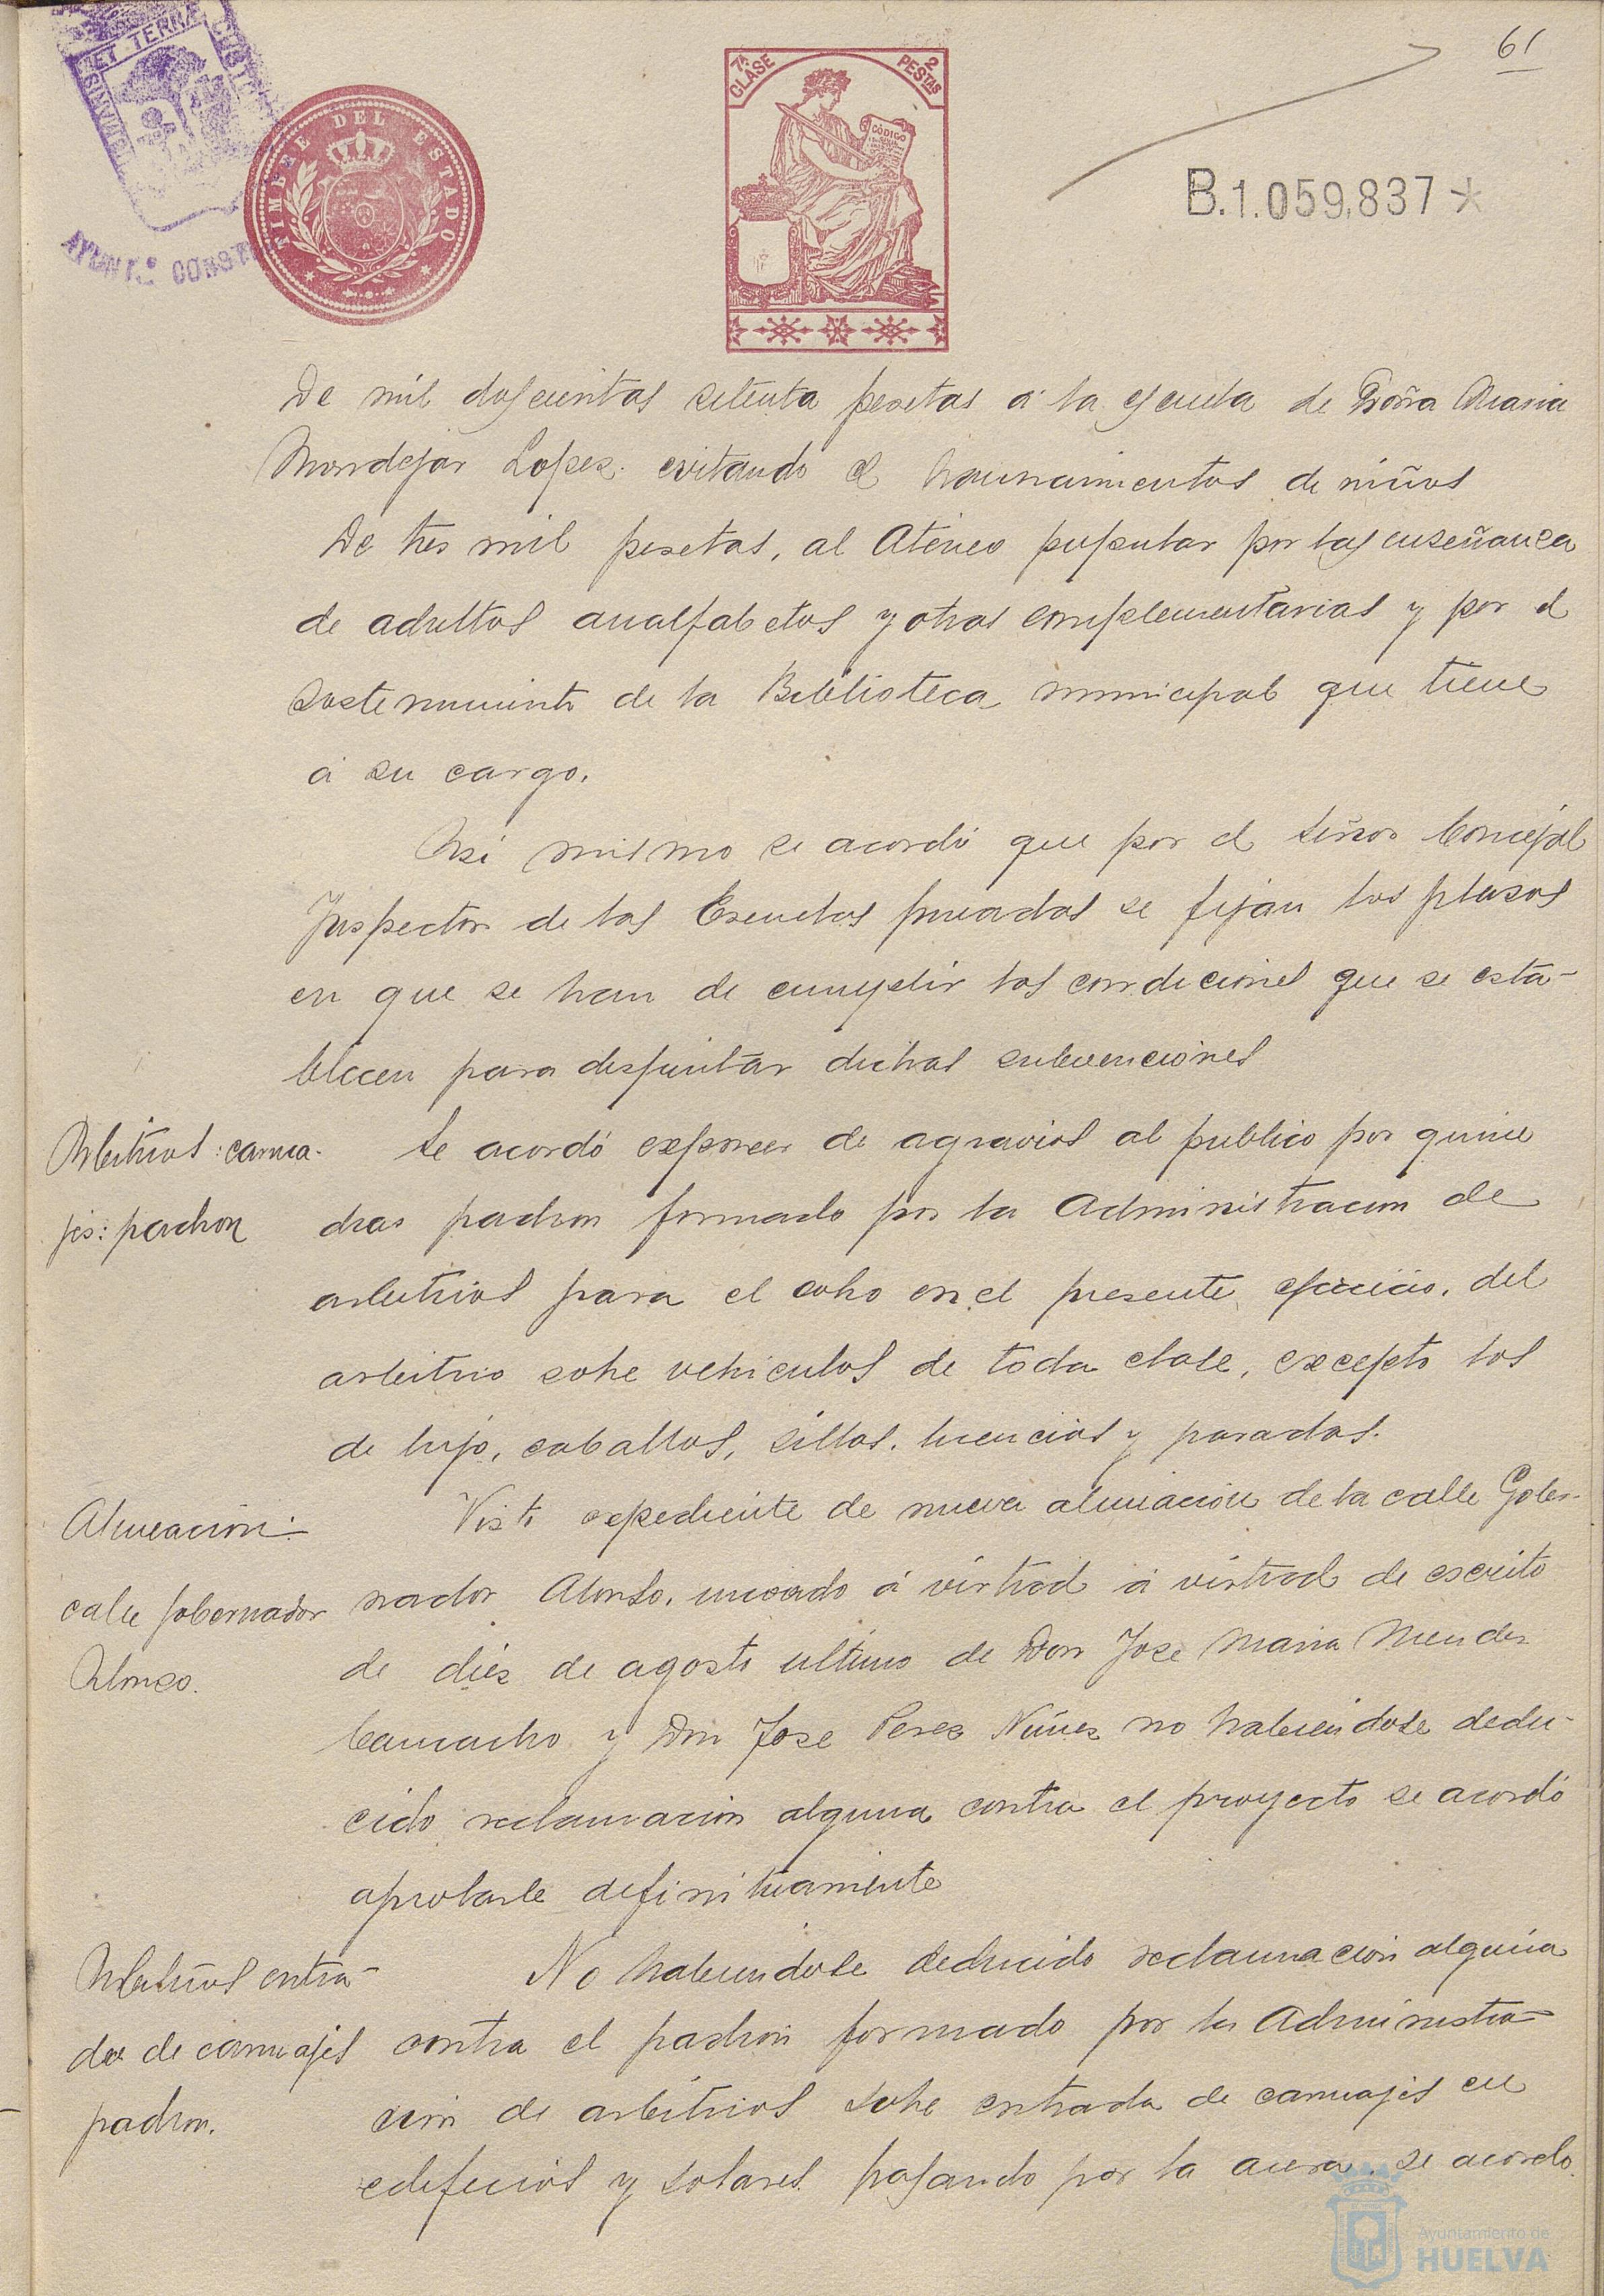 61
7ª CLASE
2 PESTAS
CÓDIGO
TIMBRE DEL ESTADO
ET TERRA
AYUNTº CONSTI
B.1.059,837*
De mil doscientas setenta pesetas á la escuela de Doña Maria
Mondejar Lopez: evitando el hacinamientos de niños
De tres mil pesetas, al Ateneo popular por las enseñanza
de adultos analfabetos y otras complementarias y por el
sostenimiento de la Biblioteca municipal que tiene
á su cargo.
Asi mismo se acordó que por el señor Concejal
Inspector de las Escuelas privadas se fijan los plasos
en que se han de cumplir las condiciones que se esta-
blecen para disfrutar dichas subvenciones
Arbitrios: carrua-
jes: padron
Se acordó exponer de agravios al publico por quince
dias padron formado por la Administracion de
arbitrios para el cobro en el presente ejercicio, del
arbitrio sobre vehiculos de toda clase, excepto los
de lujo, caballos, sillas, licencias y paradas.
Alineacion:
calle Gobernador
Alonso.
Visto expediente de nueva alineacion de la calle Gober-
nador Alonso, incoado á virtud á virtud de escrito
de diez de agosto ultimo de Don Jose Maria Mendez
Camacho y Don Jose Perez Nuñez no habiendose dedu-
cido reclamacion alguna contra el proyecto se acordó
aprobarle definitivamente
Arbitrios entra-
da de carruajes
padron.
No habiendose deducido reclamacion alguna
contra el padron formado por la Administra-
cion de arbitrios sobre entrada de carruajes en
edificios y solares pasando por la acera, se acordo
Ayuntamiento de
HUELVA